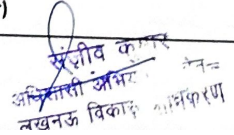 )
संजीव कुमार
अधिशासी अभि
लखनऊ विकास प्राधिकरण